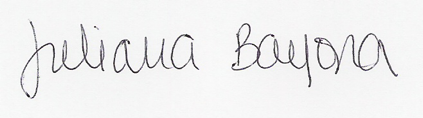 Juliana Bayona